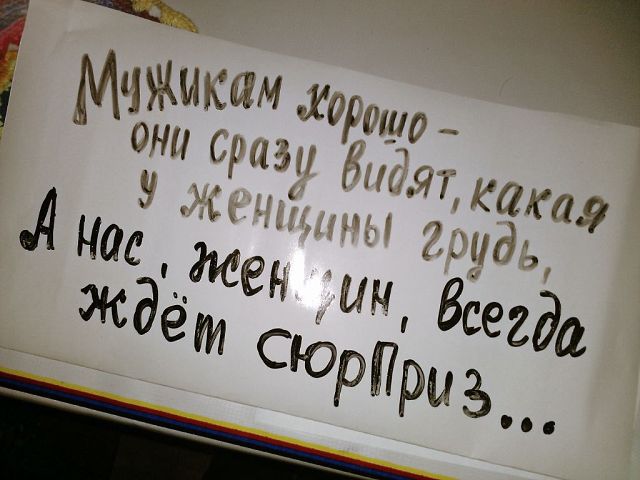 Мужикам хорошо -
они сразу видят, какая
у женщины грудь,
А нас, женщин, всегда
ждёт сюрприз...